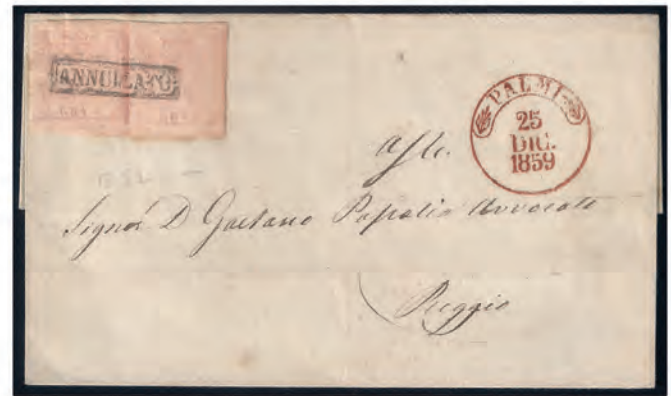 ANNULLATO
PALMI
25
DIC.
1859
All.
Signor D Gaetano Papalia Avvocato
Reggio